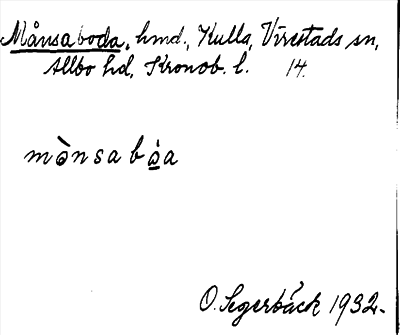 Månsaboda, hmd., Kulla, Virestads sn,
Allbo hd, Kronob. l. 14.
mə̀nsabọ̀a
O. Segerbäck 1932.